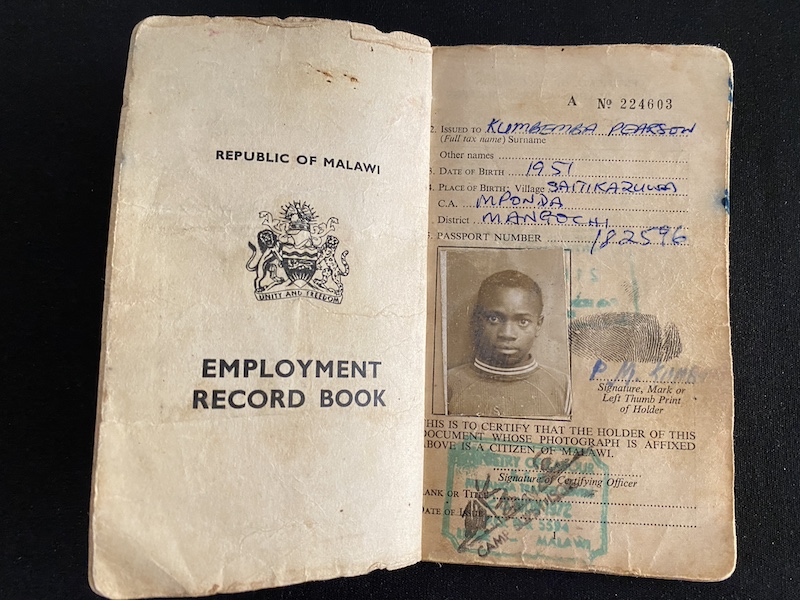 REPUBLIC OF MALAWI
UNITY AND FREEDOM
EMPLOYMENT
RECORD BOOK
A No 224603
2. ISSUED TO KUMBEMBA PEARSON
(Full tax name) Surname
Other names
3. DATE OF BIRTH 1951
4. PLACE OF BIRTH: Village
C.A. MPONDA
District MANGOCHI
5. PASSPORT NUMBER 182596
P. M.
Signature, Mark or
Left Thumb Print
of Holder
THIS IS TO CERTIFY THAT THE HOLDER OF THIS
DOCUMENT WHOSE PHOTOGRAPH IS AFFIXED
ABOVE IS A CITIZEN OF MALAWI.
MINISTRY OF LABOUR
Signature of Certifying Officer
RANK OR TITLE
DATE OF ISSUE
CAMP
MALAWI
1